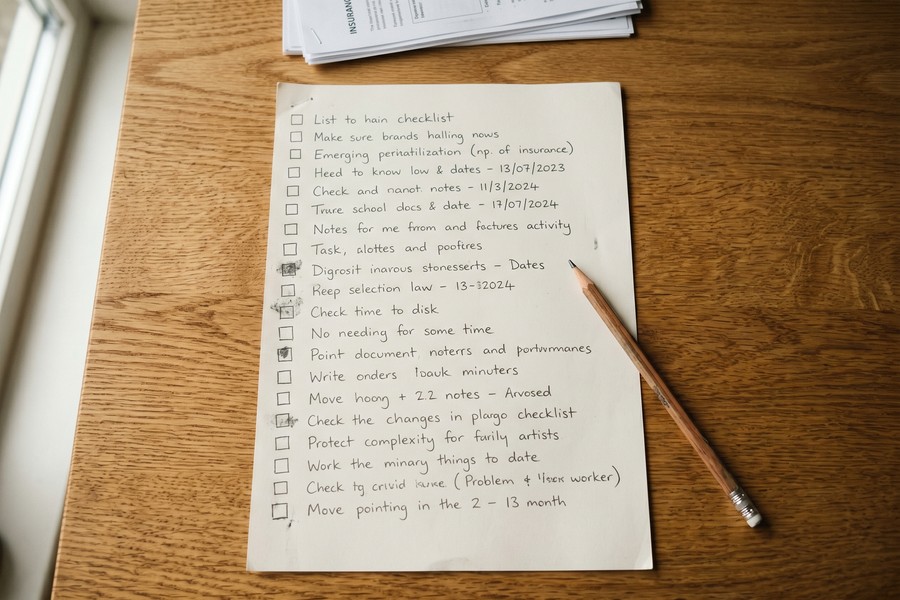 INSURAN
List to hain checklist
Make sure brands halling nows
Emerging (np. of insurance)
Heed to know low & dates - 13/07/2023
Check and nanot. notes - 11/3/2024
Trure school docs & date - 17/07/2024
Notes for me from and factures activity
Task, alottes and pooftres
Digrosit inarous stonesserts - Dates
Reep selection law - 13-2024
Check time to disk
No needing for some time
Point document noterrs and
Write onders minuters
Move hoong + 2.2 notes - Arvosed
Check the changes in plargo checklist
Protect complexity for furily artists
Work the minary things to date
Check tg crivid (Problem & worker)
Move pointing in the 2 - 13 month